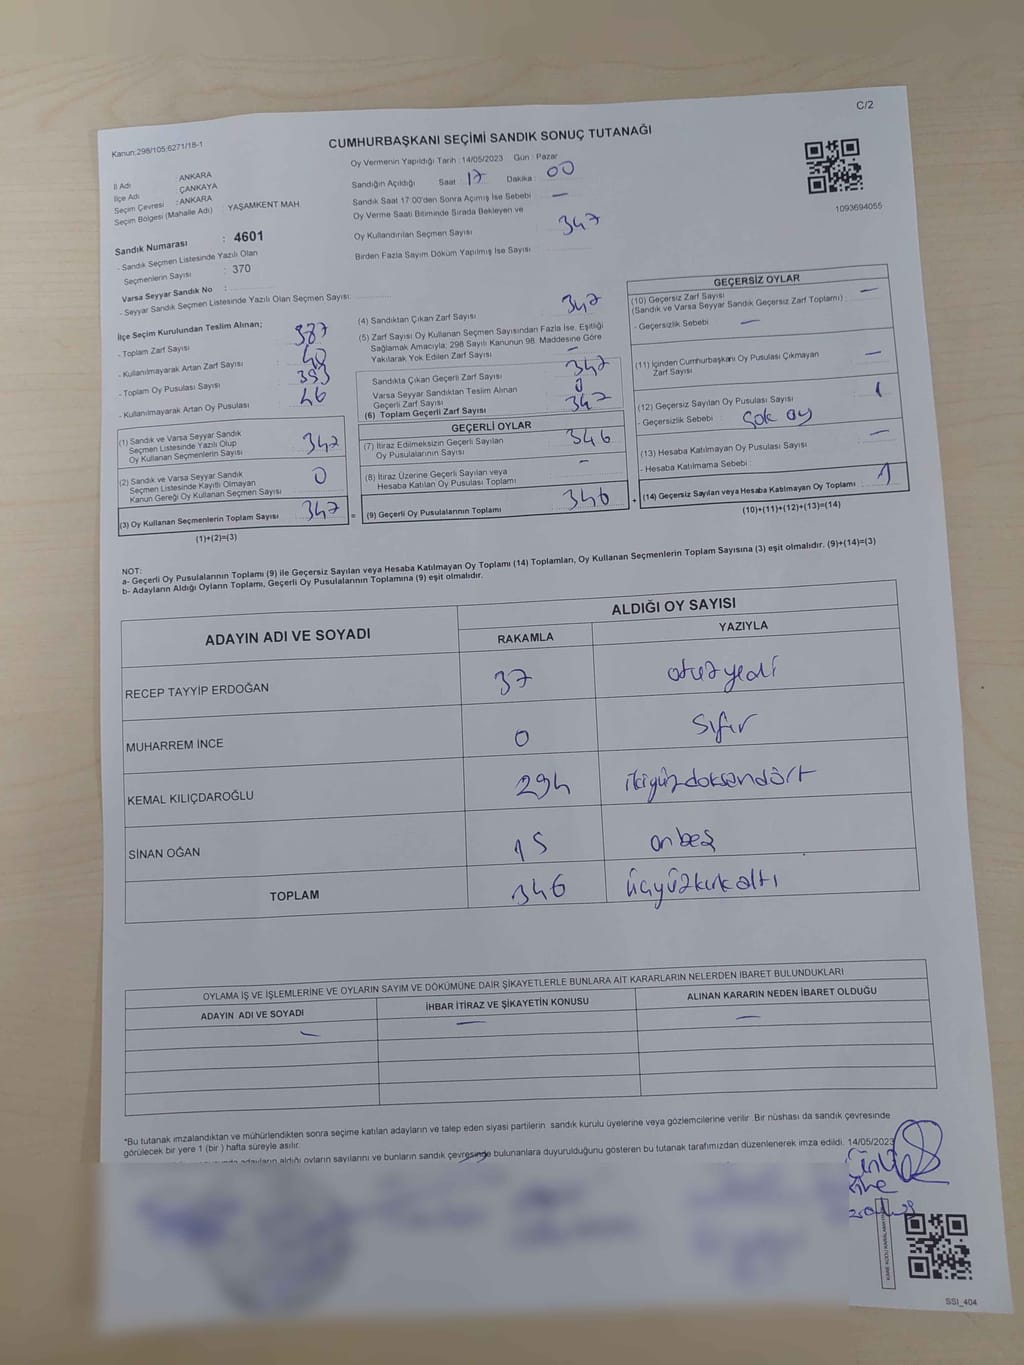 C/2
Kanun:298/105;6271/18-1
CUMHURBAŞKANI SEÇİMİ SANDIK SONUÇ TUTANAĞI
Oy Vermenin Yapıldığı Tarih : 14/05/2023 Gün : Pazar
İl Adı : ANKARA
İlçe Adı : ÇANKAYA
Seçim Çevresi : ANKARA
Seçim Bölgesi (Mahalle Adı) : YAŞAMKENT MAH
Sandık Numarası : 4601
- Sandık Seçmen Listesinde Yazılı Olan
Seçmenlerin Sayısı : 370
Varsa Seyyar Sandık No :
- Seyyar Sandık Seçmen Listesinde Yazılı Olan Seçmen Sayısı:
Sandığın Açıldığı Saat : 17 Dakika : 00
Sandık Saat 17:00'den Sonra Açımış İse Sebebi : —
Oy Verme Saati Bitiminde Sırada Bekleyen ve
Oy Kullandırılan Seçmen Sayısı : 347
Birden Fazla Sayım Döküm Yapılmış İse Sayısı :
1093694055
İlçe Seçim Kurulundan Teslim Alınan;
- Toplam Zarf Sayısı 387
- Kullanılmayarak Artan Zarf Sayısı 40
- Toplam Oy Pusulası Sayısı 393
- Kullanılmayarak Artan Oy Pusulası 46
(1) Sandık ve Varsa Seyyar Sandık
Seçmen Listesinde Yazılı Olup
Oy Kullanan Seçmenlerin Sayısı 347
(2) Sandık ve Varsa Seyyar Sandık
Seçmen Listesinde Kayıtlı Olmayan
Kanun Gereği Oy Kullanan Seçmen Sayısı 0
(3) Oy Kullanan Seçmenlerin Toplam Sayısı 347 =
(1)+(2)=(3)
(4) Sandıktan Çıkan Zarf Sayısı 347
(5) Zarf Sayısı Oy Kullanan Seçmen Sayısından Fazla İse, Eşitliği
Sağlamak Amacıyla; 298 Sayılı Kanunun 98. Maddesine Göre
Yakılarak Yok Edilen Zarf Sayısı —
Sandıkta Çıkan Geçerli Zarf Sayısı 347
Varsa Seyyar Sandıktan Teslim Alınan
Geçerli Zarf Sayısı 0
(6) Toplam Geçerli Zarf Sayısı 347
GEÇERLİ OYLAR
(7) İtiraz Edilmeksizin Geçerli Sayılan
Oy Pusulalarının Sayısı 346
(8) İtiraz Üzerine Geçerli Sayılan veya
Hesaba Katılan Oy Pusulası Toplamı —
(9) Geçerli Oy Pusulalarının Toplamı 346 +
GEÇERSİZ OYLAR
(10) Geçersiz Zarf Sayısı —
(Sandık ve Varsa Seyyar Sandık Geçersiz Zarf Toplamı)
- Geçersizlik Sebebi : —
(11) İçinden Cumhurbaşkanı Oy Pusulası Çıkmayan
Zarf Sayısı —
(12) Geçersiz Sayılan Oy Pusulası Sayısı 1
- Geçersizlik Sebebi : Çok oy
(13) Hesaba Katılmayan Oy Pusulası Sayısı —
- Hesaba Katılmama Sebebi :
(14) Geçersiz Sayılan veya Hesaba Katılmayan Oy Toplamı 1
(10)+(11)+(12)+(13)=(14)
NOT:
a- Geçerli Oy Pusulalarının Toplamı (9) ile Geçersiz Sayılan veya Hesaba Katılmayan Oy Toplamı (14) Toplamları, Oy Kullanan Seçmenlerin Toplam Sayısına (3) eşit olmalıdır. (9)+(14)=(3)
b- Adayların Aldığı Oyların Toplamı, Geçerli Oy Pusulalarının Toplamına (9) eşit olmalıdır.
ADAYIN ADI VE SOYADI ALDIĞI OY SAYISI
RAKAMLA YAZIYLA
RECEP TAYYİP ERDOĞAN 37 otuzyedi
MUHARREM İNCE 0 Sıfır
KEMAL KILIÇDAROĞLU 294 ikiyüzdoksandört
SİNAN OĞAN 15 onbeş
TOPLAM 346 üçyüzkırkaltı
OYLAMA İŞ VE İŞLEMLERİNE VE OYLARIN SAYIM VE DÖKÜMÜNE DAİR ŞİKAYETLERLE BUNLARA AİT KARARLARIN NELERDEN İBARET BULUNDUKLARI
ADAYIN ADI VE SOYADI İHBAR İTİRAZ VE ŞİKAYETİN KONUSU ALINAN KARARIN NEDEN İBARET OLDUĞU
— — —
*Bu tutanak imzalandıktan ve mühürlendikten sonra seçime katılan adayların ve talep eden siyasi partilerin sandık kurulu üyelerine veya gözlemcilerine verilir. Bir nüshası da sandık çevresinde
görülecek bir yere 1 (bir) hafta süreyle asılır.
adayların aldığı oyların sayılarını ve bunların sandık çevresinde bulunanlara duyurulduğunu gösteren bu tutanak tarafımızdan düzenlenerek imza edildi. 14/05/2023
SSI_404